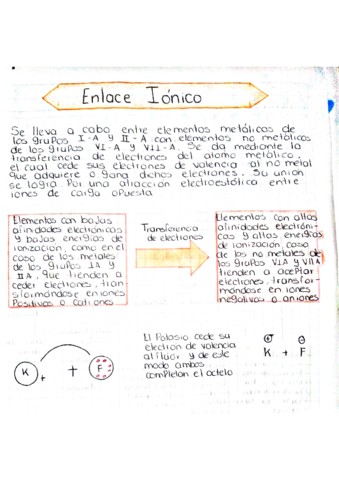 Enlace Iónico
Se lleva a cabo entre elementos metálicos de
los grupos I-A y II-A con elementos no metálicos
de los grupos VI-A y VII-A. Se da mediante la
transferencia de electrones del atomo metálico,
el cual cede sus electrones de valencia al no metal
que adquiere o gana dichos electrones. Su unión
se logra Por una atracción electroestática entre
iones de carga opuesta
Elementos con bajas
afinidades electrónicas
y bajas energías de
ionización, como en el
caso de los metales
de los grupos IA y
IIA, que tienden a
ceder electrones, tran
sformándose en iones
Positivos o cationes
Transferencia
de electrones
Elementos con altas
afinidades electróni-
cas y altas energías
de ionización, caso
de los no metales de
los grupos VIA y VIIA
tienden a aceptar
electrones, transfor-
mándose en iones
negativos o aniones
K + + F
El Potasio cede su
electron de valencia
al fluor y de este
modo ambos
completan el octeto
+ -
K + F